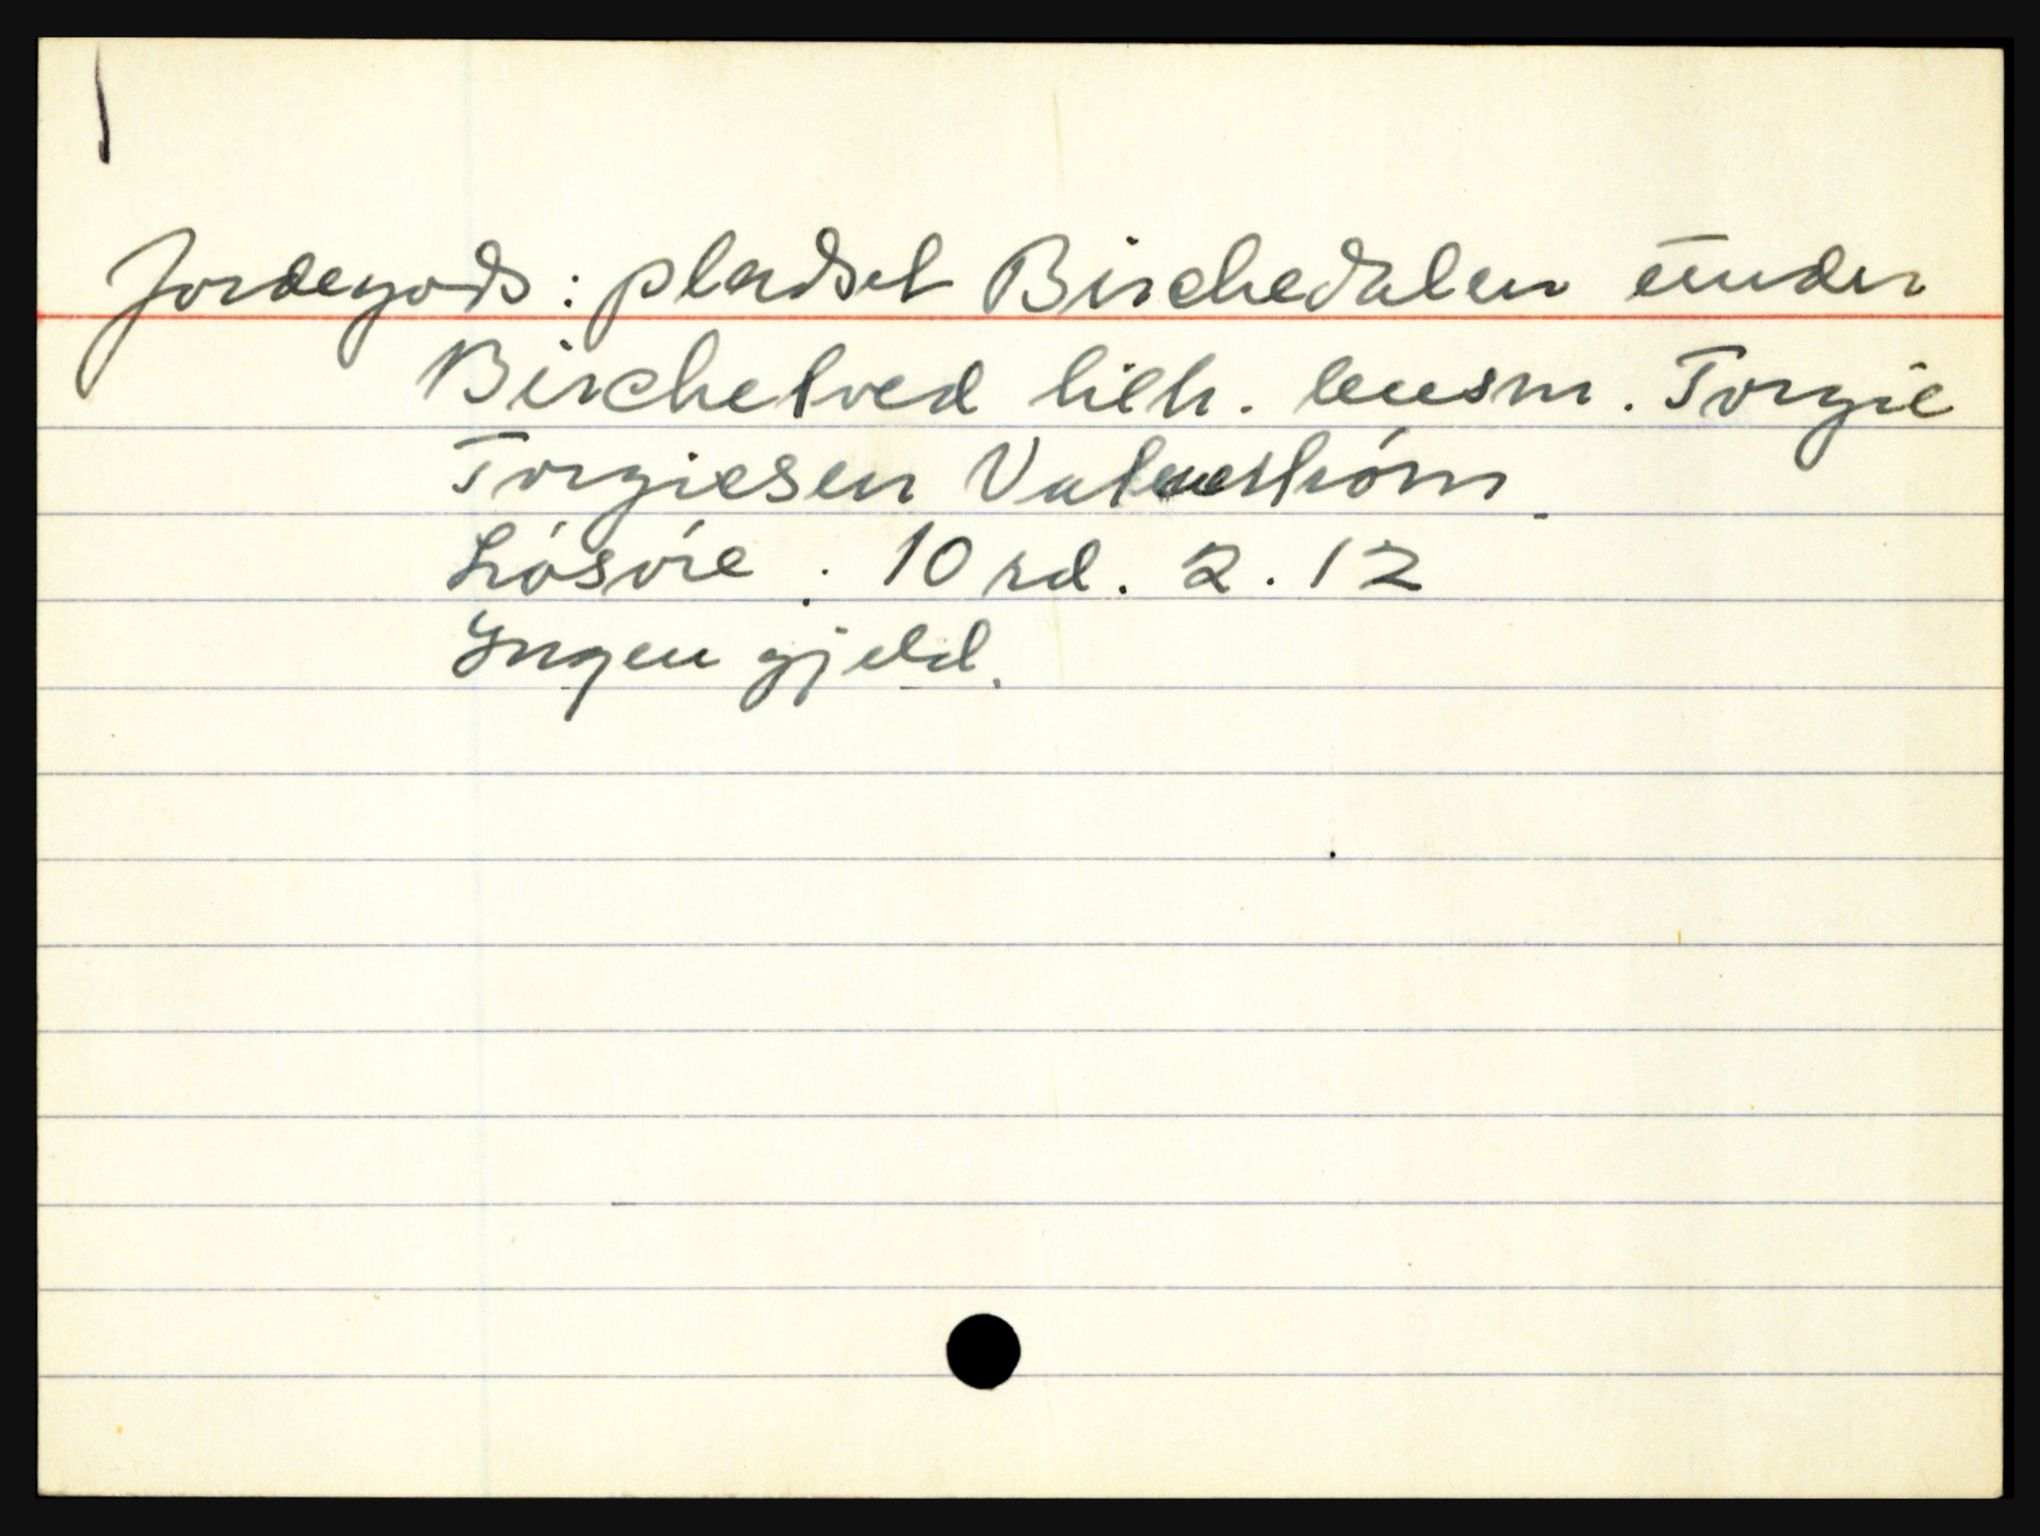 Jordegods: pladset Birchedalen under
Birchetved tilh. leusm. Torgie
Torgiesen Valestróm.
Lósóre: 10 rd. 2. 12
Yngen gjeld.